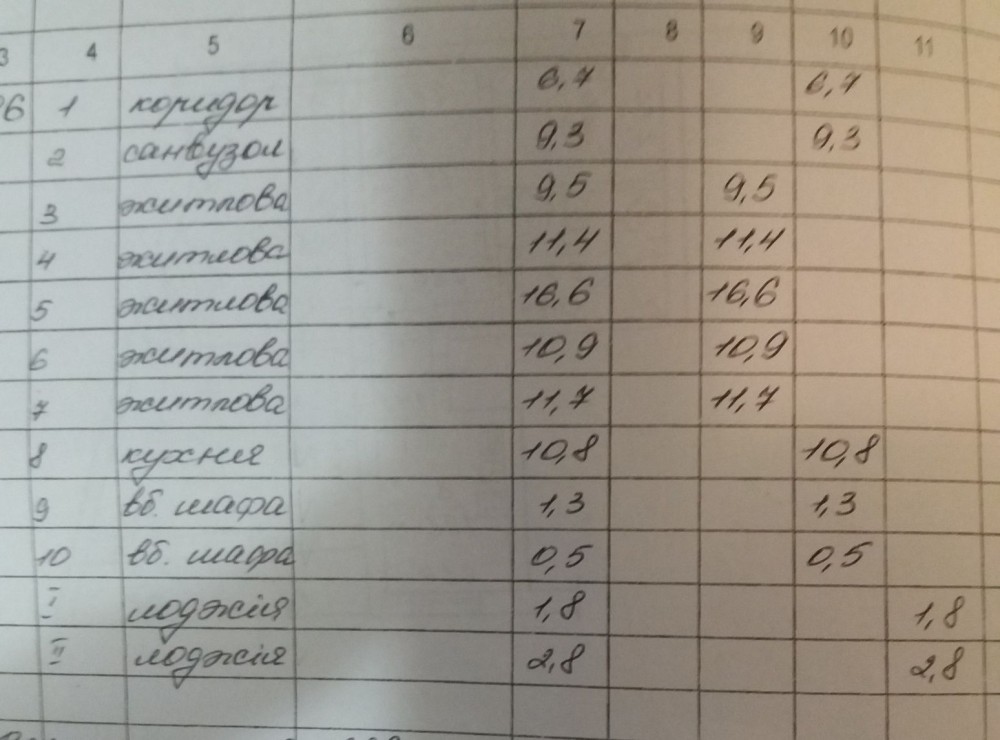 3 4 5 6 7 8 9 10 11
96 1 коридор 6,7 6,7
2 санвузол 9,3 9,3
3 житлова 9,5 9,5
4 житлова 11,4 11,4
5 житлова 16,6 16,6
6 житлова 10,9 10,9
7 житлова 11,7 11,7
8 кухня 10,8 10,8
9 вб. шафа 1,3 1,3
10 вб. шафа 0,5 0,5
I лоджія 1,8 1,8
II лоджія 2,8 2,8